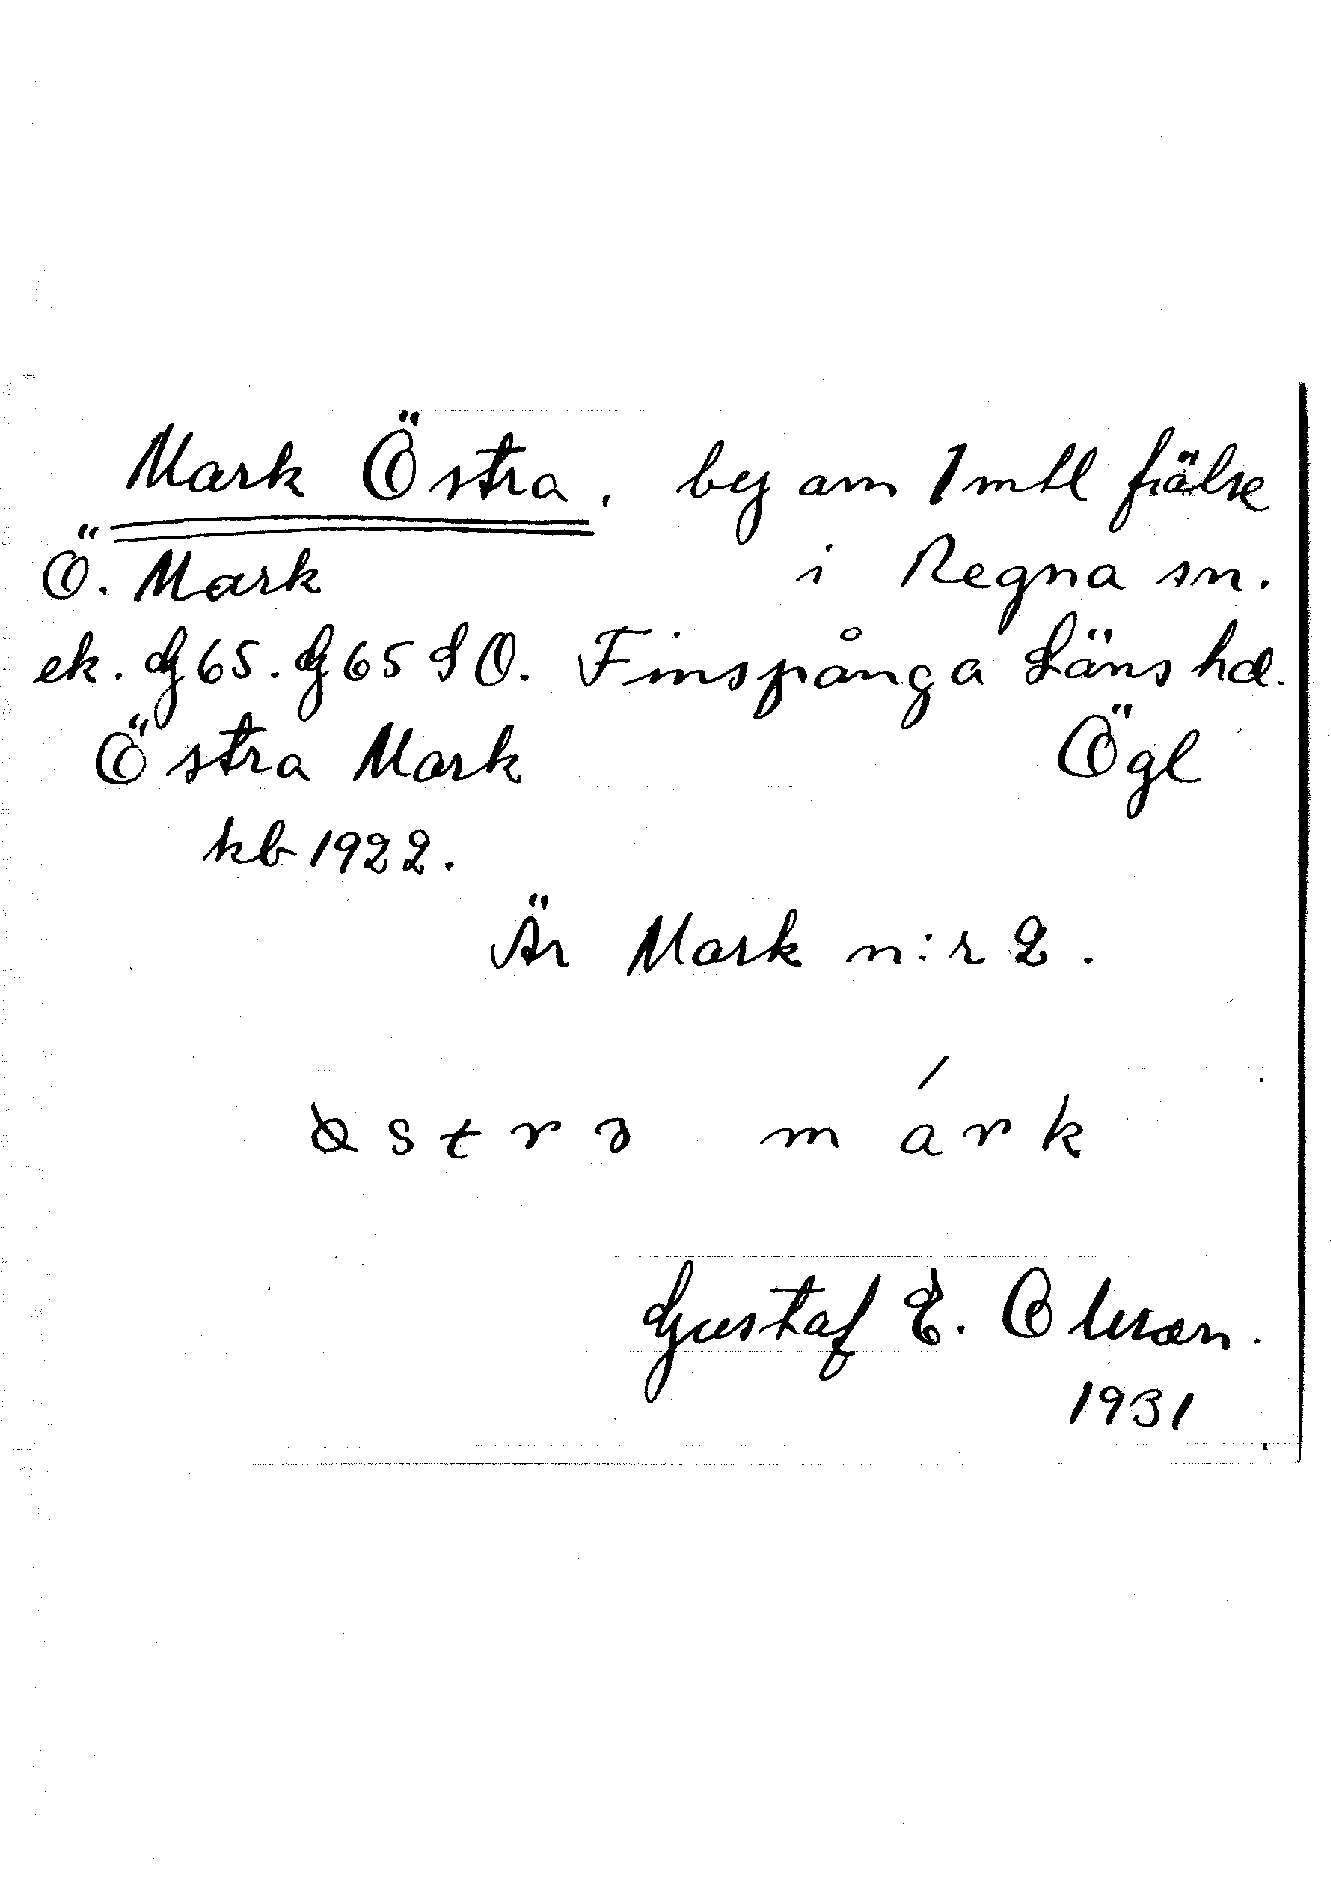 Mark Östra. by om 1 mtl frälse
Ö. Mark i Regna sn.
ek. G 65. G 65 SO. Finspånga Läns hd.
Östra Mark Ögl
kb 1922.
Är Mark n:r 2.
márk
Gustaf E. Olsson.
1931